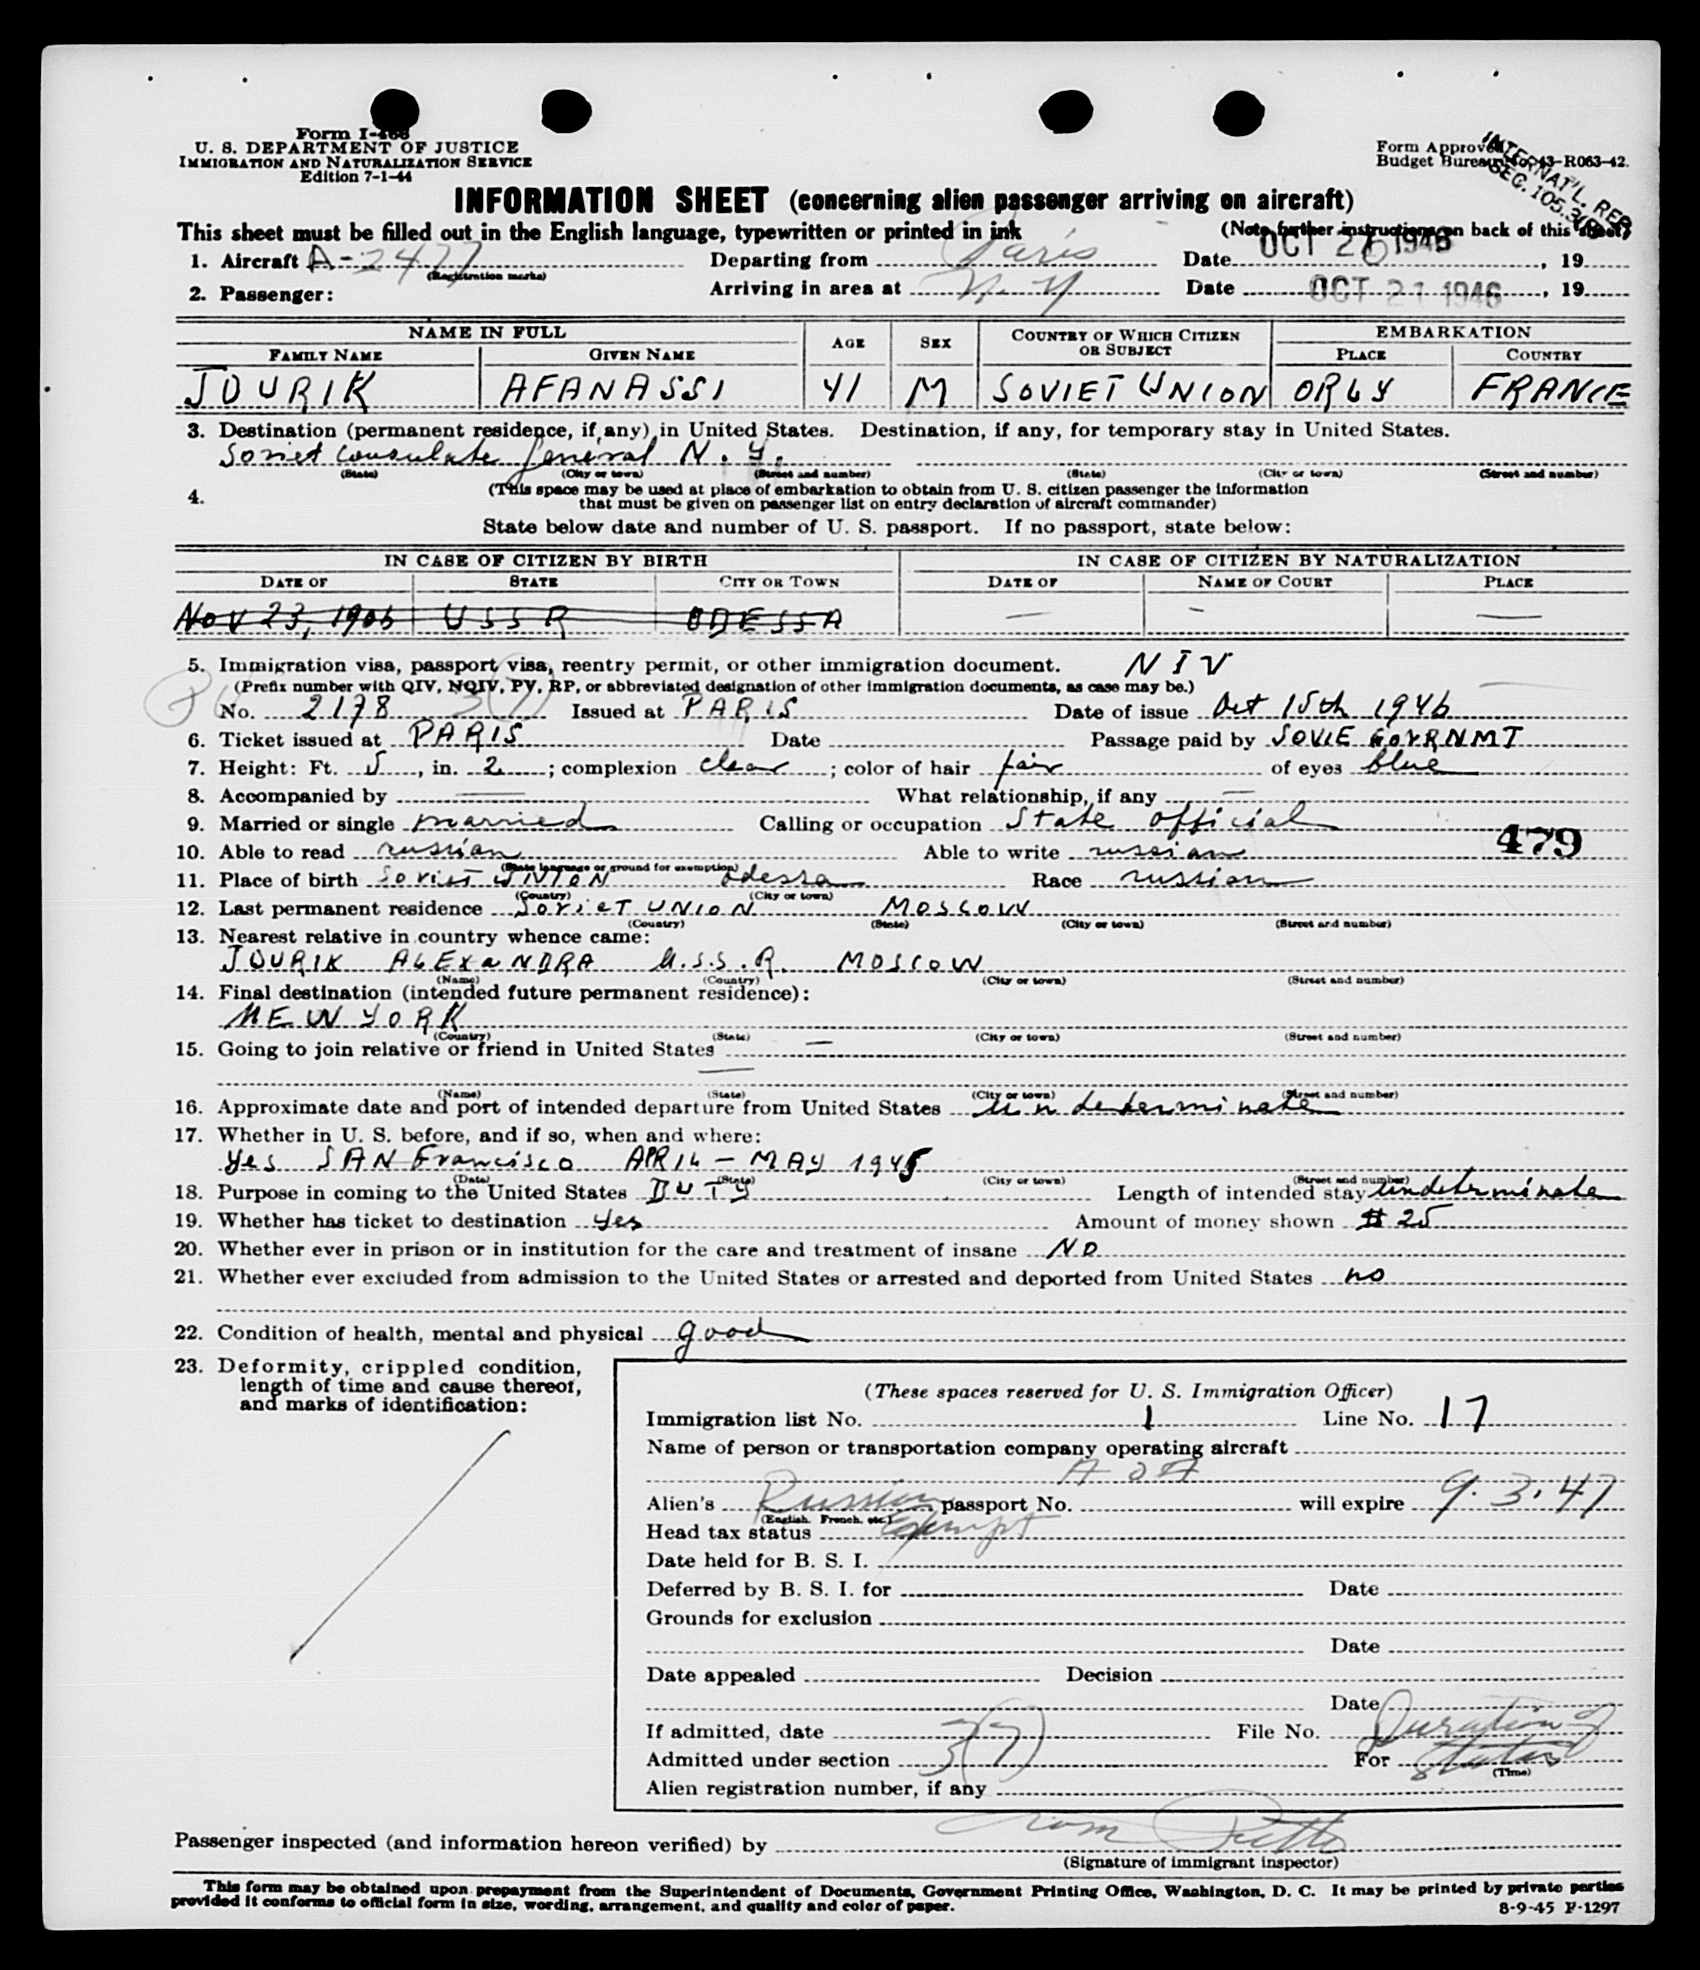 Form I-466
U. S. DEPARTMENT OF JUSTICE
IMMIGRATION AND NATURALIZATION SERVICE
Edition 7-1-44
Form Approved
Budget Bureau No. 43-R063-42.
INTERNAT'L. REG.
SEC. 105.3(B)
INFORMATION SHEET (concerning alien passenger arriving on aircraft)
This sheet must be filled out in the English language, typewritten or printed in ink (Note further instructions on back of this sheet)
1. Aircraft A-2477 Departing from Paris Date OCT 20 1946, 19
(Registration marks)
2. Passenger: Arriving in area at N.Y Date OCT 21 1946, 19
NAME IN FULL AGE SEX COUNTRY OF WHICH CITIZEN OR SUBJECT EMBARKATION
FAMILY NAME GIVEN NAME PLACE COUNTRY
JOURIK AFANASSI 41 M SOVIET UNION ORLY FRANCE
3. Destination (permanent residence, if any) in United States. Destination, if any, for temporary stay in United States.
Soviet Consulate General N. Y.
(State) (City or town) (Street and number) (State) (City or town) (Street and number)
4. (This space may be used at place of embarkation to obtain from U. S. citizen passenger the information
that must be given on passenger list on entry declaration of aircraft commander)
State below date and number of U. S. passport. If no passport, state below:
IN CASE OF CITIZEN BY BIRTH IN CASE OF CITIZEN BY NATURALIZATION
DATE OF STATE CITY OR TOWN DATE OF NAME OF COURT PLACE
NOV 23, 1906 USSR ODESSA — — —
5. Immigration visa, passport visa, reentry permit, or other immigration document. NIV
(Prefix number with QIV, NQIV, PV, RP, or abbreviated designation of other immigration documents, as case may be.)
No. 2178 3(7) Issued at PARIS Date of issue Oct 15th 1946
6. Ticket issued at PARIS Date Passage paid by SOVIE GOVRNMT
7. Height: Ft. 5, in. 2; complexion clear; color of hair fair of eyes blue
8. Accompanied by — What relationship, if any —
9. Married or single married Calling or occupation State official
479
10. Able to read russian Able to write russian
(State language or ground for exemption)
11. Place of birth Soviet UNION Odessa Race russian
(Country) (City or town)
12. Last permanent residence Soviet UNION MOSCOW
(Country) (State) (City or town) (Street and number)
13. Nearest relative in country whence came:
JOURIK ALEXANDRA U.S.S.R. MOSCOW
(Name) (Country) (City or town) (Street and number)
14. Final destination (intended future permanent residence):
NEW YORK
(Country) (State) (City or town) (Street and number)
15. Going to join relative or friend in United States —
—
(Name) (State) (City or town) (Street and number)
16. Approximate date and port of intended departure from United States undeterminate
17. Whether in U. S. before, and if so, when and where:
Yes SAN Francisco APRIL – MAY 1945
(Date) (State) (City or town) (Street and number)
18. Purpose in coming to the United States DUTY Length of intended stay undeterminate
19. Whether has ticket to destination Yes Amount of money shown $ 25
20. Whether ever in prison or in institution for the care and treatment of insane NO
21. Whether ever excluded from admission to the United States or arrested and deported from United States no
22. Condition of health, mental and physical good
23. Deformity, crippled condition,
length of time and cause thereof,
and marks of identification:
(These spaces reserved for U. S. Immigration Officer)
Immigration list No. 1 Line No. 17
Name of person or transportation company operating aircraft
AOA
Alien's Russian passport No. will expire 9.3.47
(English, French, etc.)
Head tax status Exempt
Date held for B. S. I.
Deferred by B. S. I. for Date
Grounds for exclusion
Date
Date appealed Decision
Date
If admitted, date File No.
Admitted under section 3(7) For Duration of Status
(Time)
Alien registration number, if any
Passenger inspected (and information hereon verified) by
(Signature of immigrant inspector)
This form may be obtained upon prepayment from the Superintendent of Documents, Government Printing Office, Washington, D. C. It may be printed by private parties
provided it conforms to official form in size, wording, arrangement, and quality and color of paper.
8-9-45 F-1297